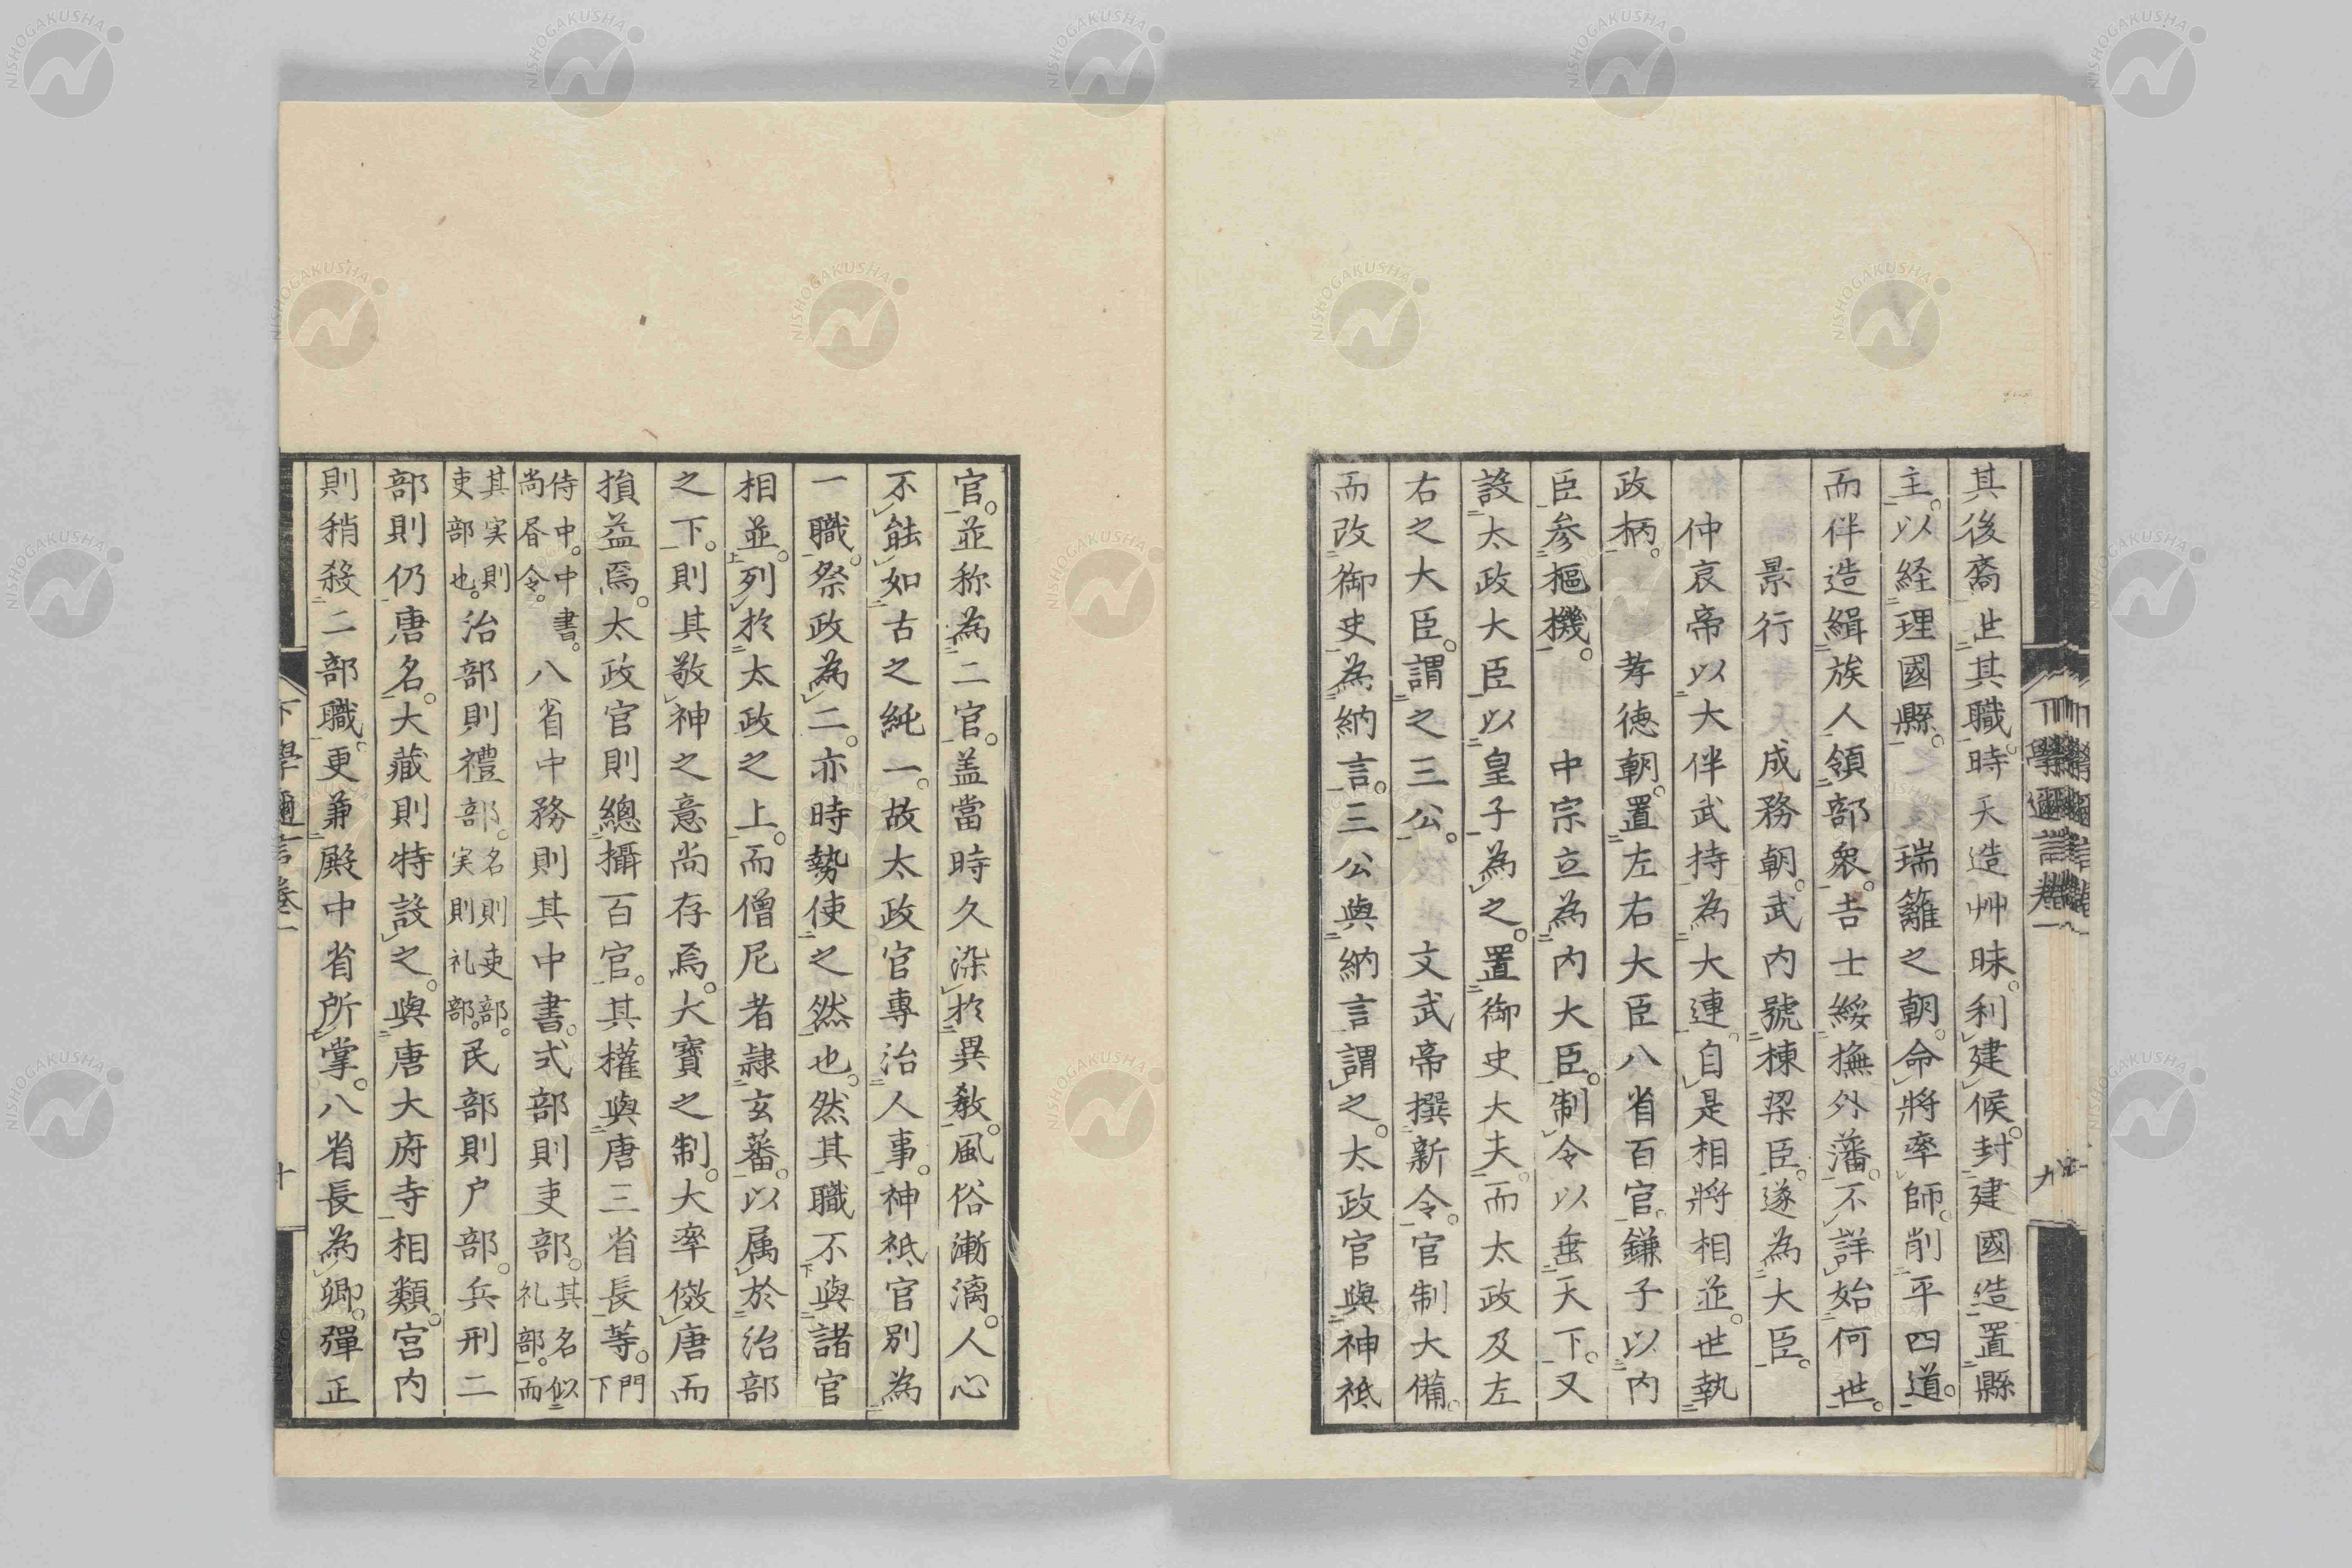 其後裔世其職時天造艸昧利建侯封建國造置縣
主以経理國縣　瑞籬之朝命將率師削平四道
而伴造緝族人領部衆吉士綏撫外藩不詳始何世
景行　成務朝武內號棟梁臣遂為大臣
仲哀帝以大伴武持為大連自是相將相並世執
政柄　孝徳朝置左右大臣八省百官鎌子以內
臣参樞機　中宗立為內大臣制令以垂天下又
設太政大臣以皇子為之置御史大夫而太政及左
右之大臣謂之三公　文武帝撰新令官制大備
而改御史為納言三公與納言謂之太政官與神祗
官並称為二官盖當時久染於異教風俗漸漓人心
不能如古之純一故太政官專治人事神祗官別為
一職祭政為二亦時勢使之然也然其職不與諸官
相並列於太政之上而僧尼者隷玄蕃以属於治部
之下則其敬神之意尚存焉大寶之制大率傚唐而
損益焉太政官則總攝百官其權與唐三省長等門下
侍中中書尚書令八省中務則其中書式部則吏部其名似礼部而
其実則吏部也治部則禮部名則吏部実則礼部民部則户部兵刑二
部則仍唐名大藏則特設之與唐大府寺相類宮內
則稍殺二部職更兼殿中省所掌八省長為卿彈正
下學邇言卷一
十
九
NISHOGAKUSHA